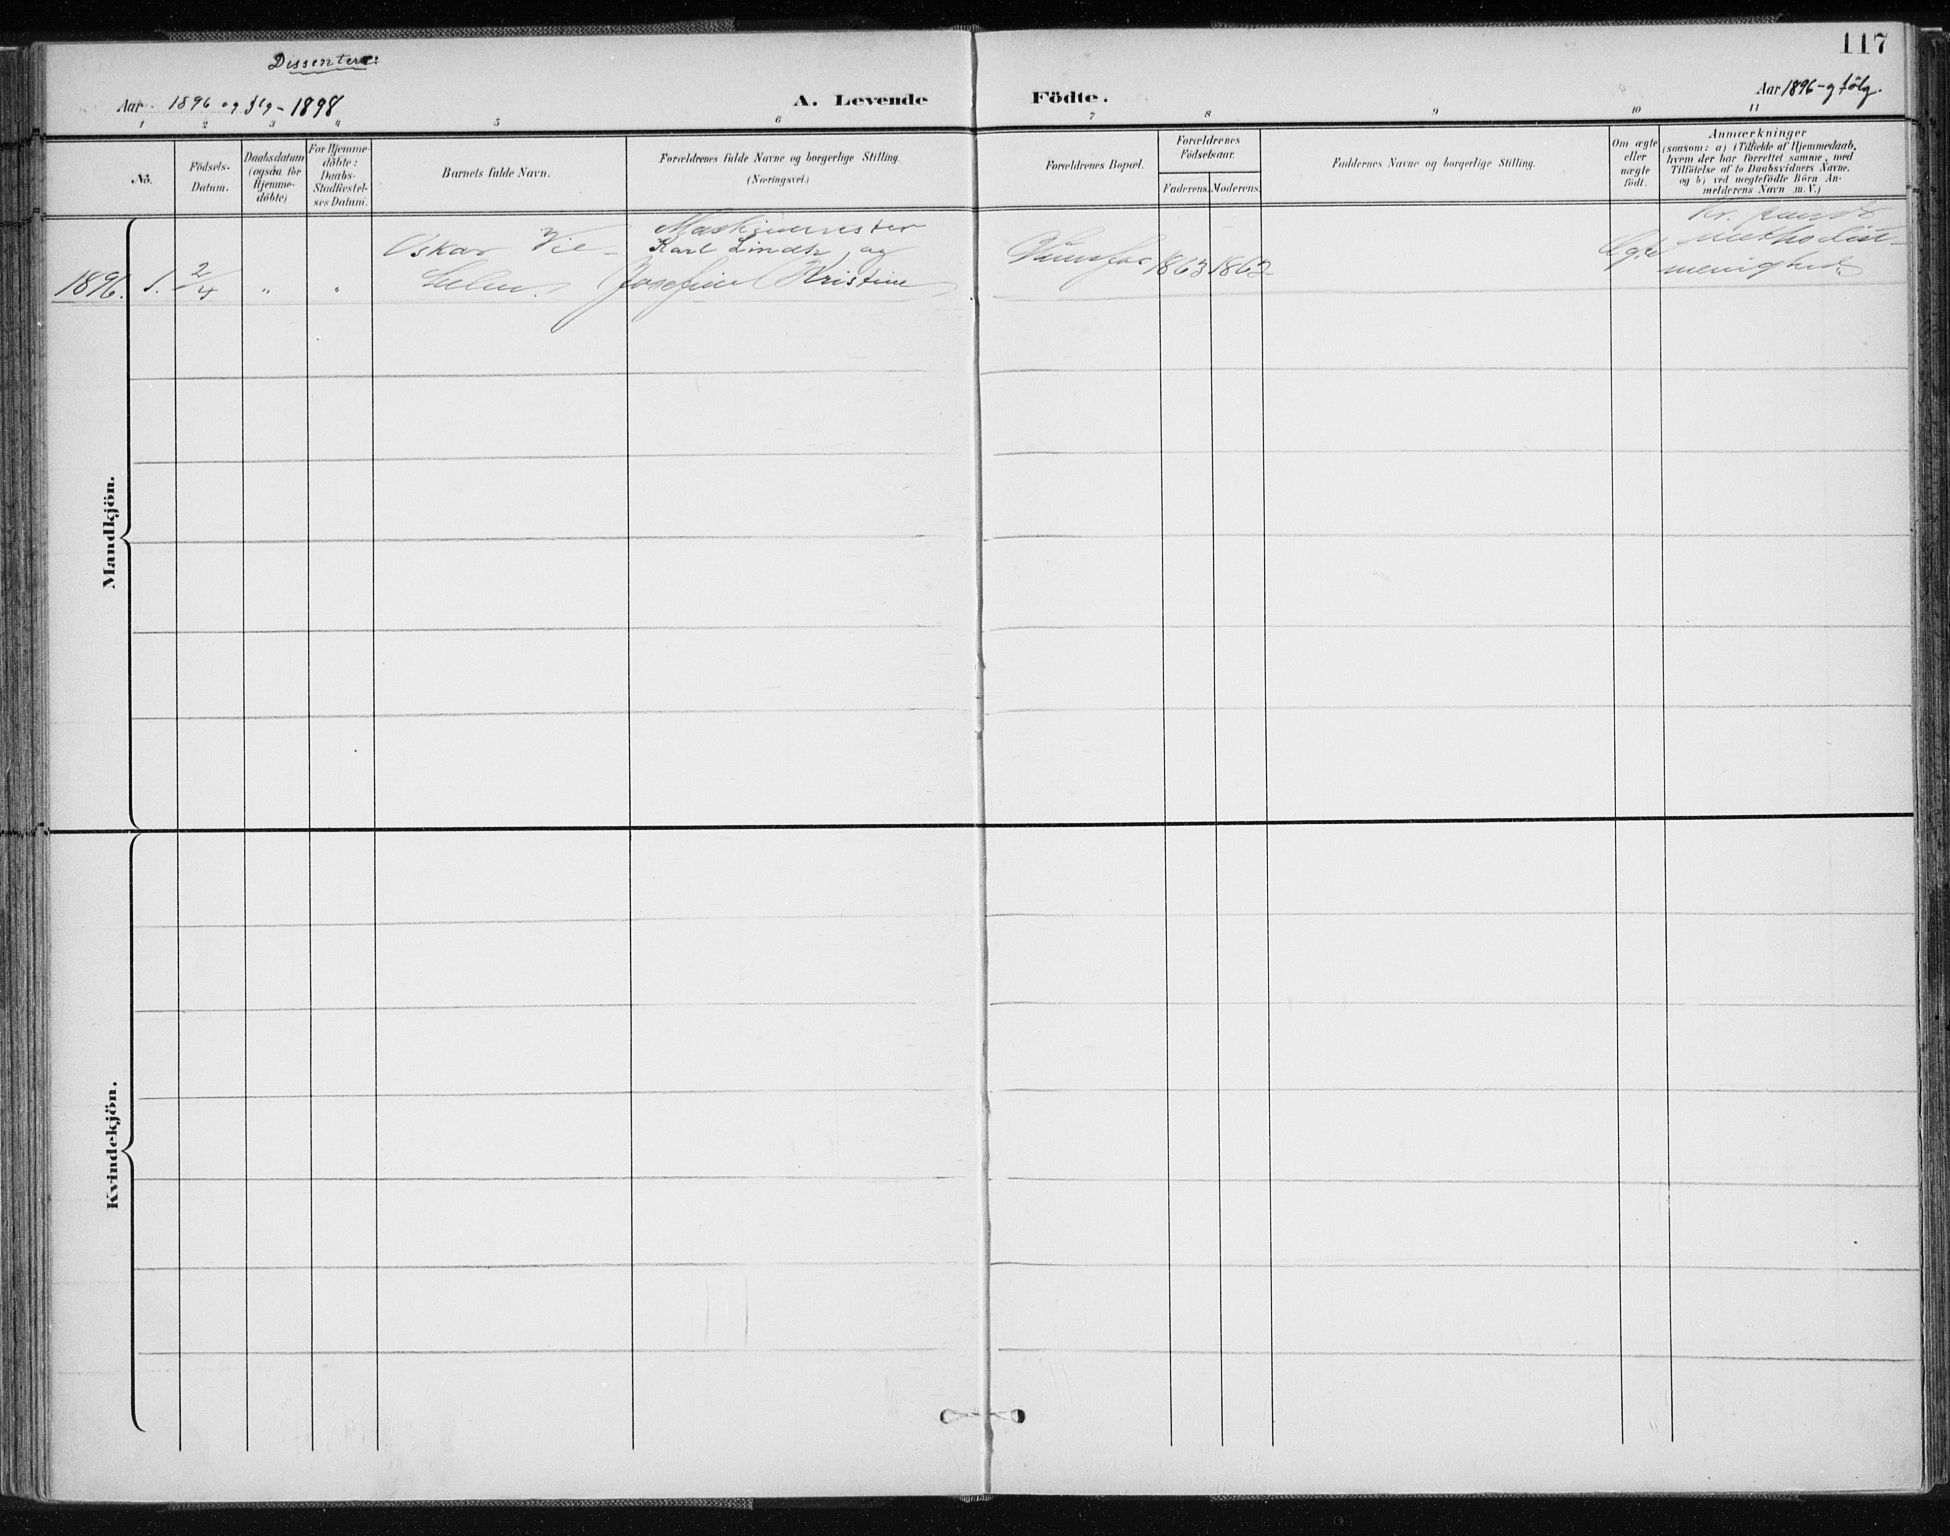 117
Dissentere:
Aar 1896 og flg - 1898
A. Levende Födte.
Aar 1896 - og følg.
1 2 3 4 5 6 7 8 9 10 11
No.
Födsels-
Datum.
Daabsdatum
(ogsaa for
Hjemme-
döbte)
For Hjemme-
döbte:
Daabs-
Stadfæstel-
ses Datum.
Barnets fulde Navn.
Forældrenes fulde Navne og borgerlige Stilling.
(Næringsvei.)
Forældrenes Bopæl.
Forældrenes
Födselsaar.
Faderens. Moderens.
Faddernes Navne og borgerlige Stilling.
Om ægte
eller
uægte
födt.
Anmærkninger
(saasom: a) i Tilfælde af Hjemmedaab,
hvem der har forrettet samme, med
Tilföielse af to Daabsvidners Navne,
og b) ved uægtefödte Börn An-
melderens Navn m. V.)
Mandkjön.
1896. 1. 2/4 " "
Oskar Vil-
Maskinmester
Karl Lindh og
Josefine Kristine
Vennesla 1863 1862
Ægte
Kr.sands
methodist-
menighed
Kvindekjön.